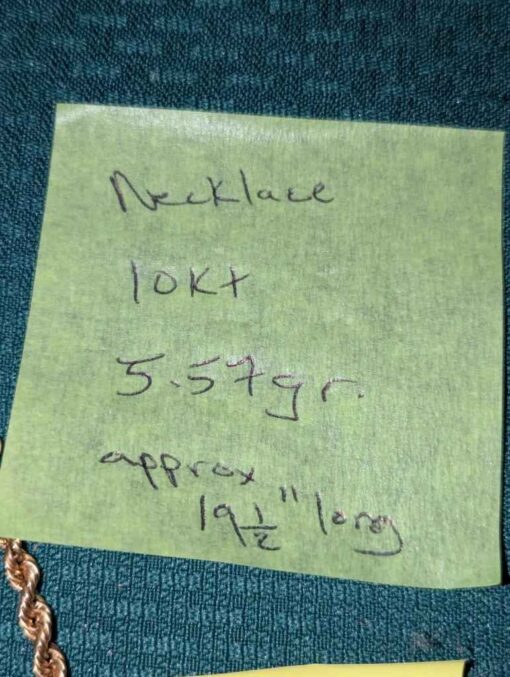 Necklace
10kt
5.57gr.
approx
19 1/2" long